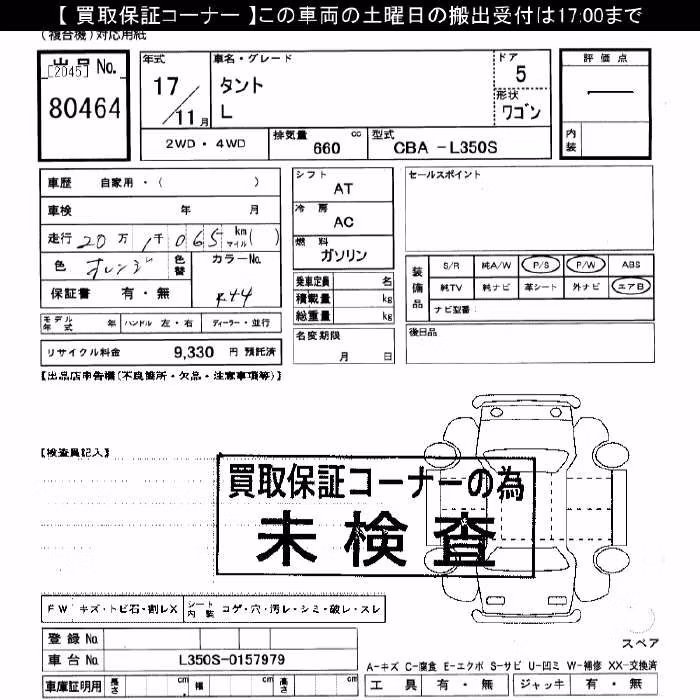 【 買取保証コーナー 】この車両の土曜日の搬出受付は17:00まで
(複合機)対応用紙
出品 No.
[2045]
80464
年式
17
11月
車名・グレード
タント
L
ドア
5
形状
ワゴン
評価点
内装
2WD ・ 4WD
排気量 cc
660
型式
CBA -L350S
車歴 自家用・( )
車検 年 月
走行 20万 1千065 km マイル( )
色 オレンジ
色替
カラーNo.
R44
保証書 有・無
モデル年式 年 ハンドル 左・右 ディーラー・並行
リサイクル料金 9,330 円 預託済
シフト
AT
冷房
AC
燃料
ガソリン
乗車定員 名
積載量 kg
総重量 kg
名変期限
月 日
セールスポイント
装備品
S/R 純A/W P/S P/W ABS
純TV 純ナビ 革シート 外ナビ エアB
ナビ型番
後日品
【出品店申告欄(不良箇所・欠品・注意事項等)】
【検査員記入】
買取保証コーナーの為
未検査
FW キズ・トビ石・割レX シート内装 コゲ・穴・汚レ・シミ・破レ・スレ
登録 No.
車台 No. L350S-0157979
車庫証明用 長さ cm 幅 cm 高さ cm
スペア
A-キズ C-腐食 E-エクボ S-サビ U-凹ミ W-補修 XX-交換済
工具 有・無 ジャッキ 有・無